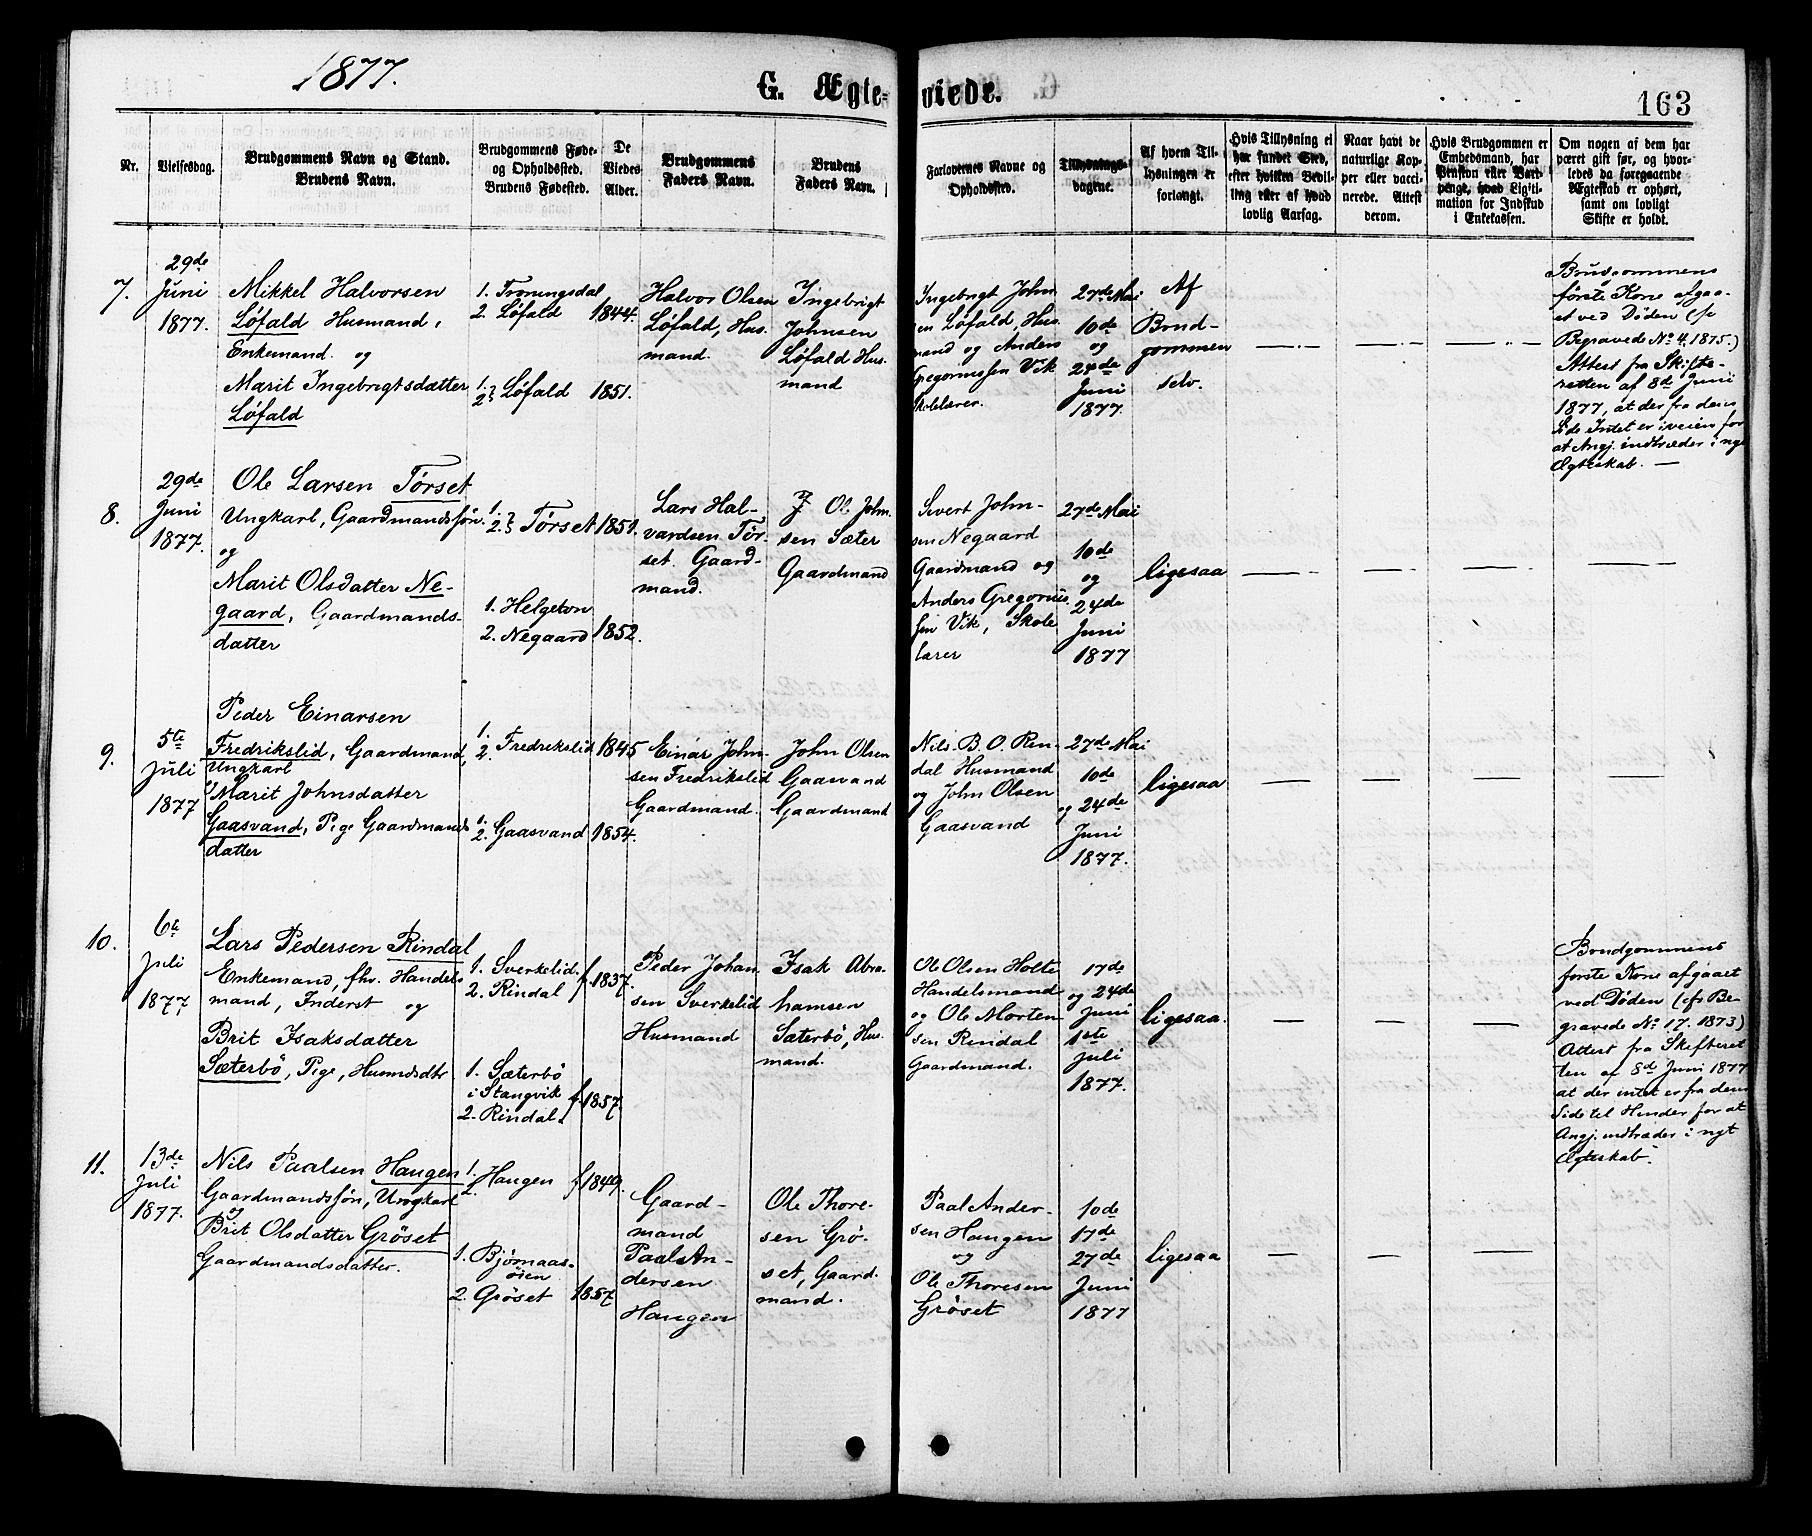 1877.
G. Ægte-
viede.
163
Nr.
Vielsesdag.
Brudgommens Navn og Stand.
Brudens Navn.
Brudgommens Føde-
og Opholdssted.
Brudens Fødested.
De
Viedes
Alder.
Brudgommens
Faders Navn.
Brudens
Faders Navn.
Forlovernes Navne og
Opholdssted.
Tillysnings-
dagene.
Af hvem Til-
lysningen er
forlangt.
Hvis Tillysning ei
har fundet Sted,
efter hvilken Bevil-
ling eller af hvad
lovlig Aarsag.
Naar havt de
naturlige Kop-
per eller vacci-
nerede. Attest
derom.
Hvis Brudgommen er
Embedsmand, har
Pension eller Vart-
penge, hvad Legiti-
mation for Indskud
i Enkekassen.
Om nogen af dem har
været gift før, og hvor-
ledes da foregaaende
Ægteskab er ophørt,
samt om lovligt
Skifte er holdt.
7.
29de
Juni
1877.
Mikkel Halvorsen
Løfald Husmand,
Enkemand. og
Marit Ingebrigtsdatter
Løfald
1. Troningsdal
2. Løfald
1844.
1.
2. Løfald
1851.
Halvor Olsen
Løfald, Hus-
mand.
Ingebrigt
Johnsen
Løfald Hus-
mand
Ingebrigt John-
sen Løfald, Hus-
mand og Anders
Gregoriussen Vik
Skolelærer.
27de Mai
10de
og
24de
Juni
1877.
Af
Brud-
gommen
selv.
Brudgommens
første Kone afgaa-
et ved Døden (se
Begravede No 4, 1875.)
Attest fra Skifte-
retten af 8de Juni
1877, at der fra dens
Side Intet er iveien for
at Angj. indtræder i nyt
Ægteskab. —
8.
29de
Juni
1877.
Ole Larsen Tørset
Ungkarl, Gaardmandssøn.
og
Marit Olsdatter Ne-
gaard, Gaardmands-
datter
1.
2. Tørset
1851.
1. Helgeton
2. Negaard
1852.
Lars Hal-
vardsen Tør-
set. Gaard-
mand.
Ol John-
sen Sæter
Gaardmand
Sivert John-
sen Negaard
Gaardmand og
Anders Gregorius-
sen Vik, Skole
lærer
27de Mai
10de
og
24de
Juni
1877
ligesaa
9.
5te
Juli
1877
Peder Einarsen
Fredrikslid, Gaardmand,
Ungkarl
og Marit Johnsdatter
Gaasvand, Pige Gaardmands
datter
1.
2. Fredrikslid
1845
1.
2. Gaasvand
1854.
Einar John-
sen Fredrikslid
Gaardmand.
John Olsen
Gaasvand
Gaardmand
Nils B. O. Rin-
dal Husmand
og John Olsen
Gaasvand
27de Mai
10de
og 24de
Juni
1877.
ligesaa
10.
6te
Juli
1877
Lars Pedersen Rindal
Enkemand, fhv. Handels
mand, Inderst og
Brit Isaksdatter
Sæterbö, Pige, Husmdsdtr
1. Sverkelid.
2. Rindal
f. 1837.
1. Sæterbö
i Stangvik
2. Rindal.
f. 1857.
Peder Johan-
sen Sverkelid
Husmand
Isak Abra-
hamsen
Sæterbö, Hus-
mand.
Ole Olsen Holte
Handelsmand
og Ole Morten-
sen Rindal
Gaardmand.
17de
og 24de
Juni
1ste
Juli
1877.
ligesaa.
Brudgommens
første Kone afgaaet
ved Døden (cfr Be-
gravede No 17. 1873)
Attest fra Skifteret
ten af 8de Juni 1877
at der intet er fra dens
Side til Hinder for at
Angj. indtræder i nyt
Ægteskab.
11.
13de
Juli
1877.
Nils Paalsen Haugen
Gaardmandssøn, Ungkarl
og
Brit Olsdatter Grøset
Gaardmandsdatter.
1.
2. Haugen
f 1849.
1. Bjørnaas-
øien
2. Grøset
1857.
Gaard-
mand
Paal An-
dersen
Haugen
Ole Thore-
sen Grø-
set, Gaard-
mand.
Paal Ander-
sen Haugen
og
Ole Thoresen
Grøset
10de
17de
27de
Juni
1877
ligesaa